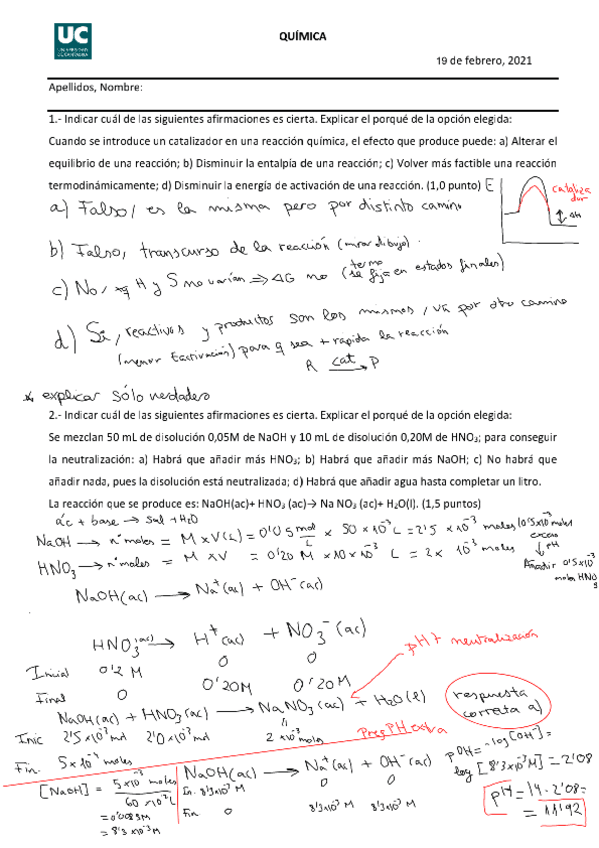 UC
UNIVERSIDAD
DE CANTABRIA
QUÍMICA
19 de febrero, 2021
Apellidos, Nombre:
1.- Indicar cuál de las siguientes afirmaciones es cierta. Explicar el porqué de la opción elegida:
Cuando se introduce un catalizador en una reacción química, el efecto que produce puede: a) Alterar el
equilibrio de una reacción; b) Disminuir la entalpía de una reacción; c) Volver más factible una reacción
termodinámicamente; d) Disminuir la energía de activación de una reacción. (1,0 punto)
E
cataliza
dor
ΔH
a) Falso, es la misma pero por distinto camino
b) Falso, transcurso de la reacción (mirar dibujo).
c) No, xq H y S no varían => ΔG no (termo se fija en estados finales)
d) Si, reactivos y productos son los mismos, va por otro camino
(menor Eactivación) para q sea + rápida la reacción
R cat→ P
* explicar sólo verdadero
2.- Indicar cuál de las siguientes afirmaciones es cierta. Explicar el porqué de la opción elegida:
Se mezclan 50 mL de disolución 0,05M de NaOH y 10 mL de disolución 0,20M de HNO₃; para conseguir
la neutralización: a) Habrá que añadir más HNO₃; b) Habrá que añadir más NaOH; c) No habrá que
añadir nada, pues la disolución está neutralizada; d) Habrá que añadir agua hasta completar un litro.
La reacción que se produce es: NaOH(ac)+ HNO₃ (ac)→ Na NO₃ (ac)+ H₂O(l). (1,5 puntos)
ác + base → sal + H₂O
NaOH → nº moles = M x V(L) = 0'05 mol/L x 50 x10⁻³ L = 2'5 x 10⁻³ moles
0'5x10⁻³ moles
exceso
↓ pH
HNO₃ → nº moles = M x V = 0'20 M x 10 x 10⁻³ L = 2 x 10⁻³ moles
Añadir 0'5x10⁻³
moles HNO₃
NaOH(ac) → Na⁺(ac) + OH⁻(ac)
HNO₃(ac) → H⁺(ac) + NO₃⁻(ac)
pH + neutralización
Inicial 0'2 M 0 0
Final 0 0'20M 0'20M
NaOH(ac) + HNO₃(ac) → NaNO₃(ac) + H₂O(l)
respuesta
correcta a)
Inic 2'5x10⁻³ mol 2'0x10⁻³ mol
2 x10⁻³ moles
Preg PH extra
Fin. 5x10⁻⁴ moles
[NaOH] = 5x10⁻⁴ moles / 60 x10⁻³ L
= 0'0083M
= 8'3 x10⁻³ M
NaOH(ac) → Na⁺(ac) + OH⁻(ac)
In. 8'3x10⁻³ M 0 0
Fin 0 8'3x10⁻³ M 8'3x10⁻³ M
pOH = -log[OH⁻] =
log [8'3x10⁻³ M] = 2'08
pH = 14 - 2'08 =
= 11'92